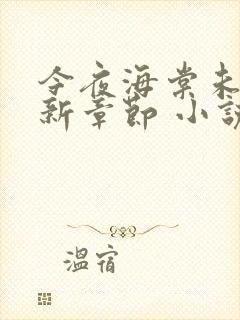 今夜海棠未
新章節 小說
溫宿